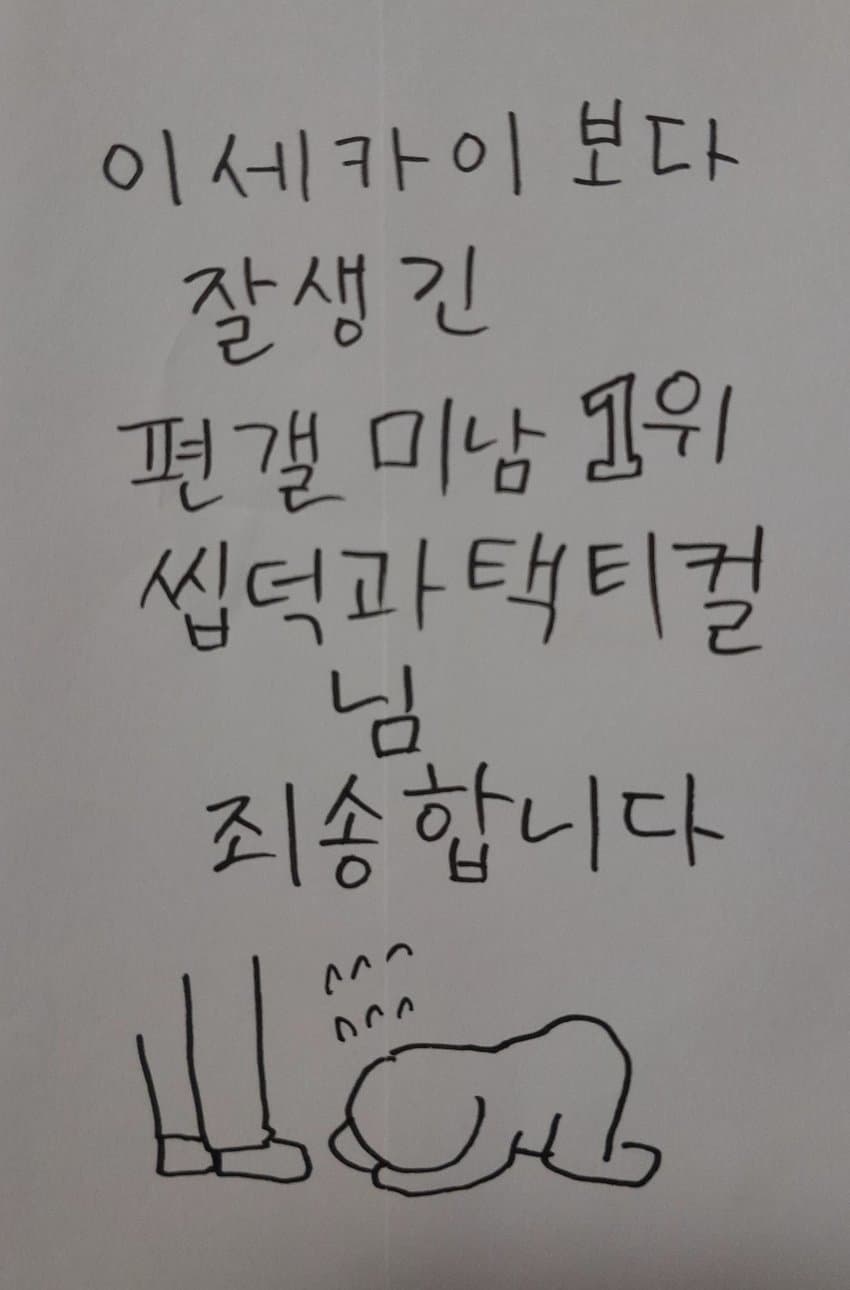 이세카이 보다
잘생긴
편갤 미남 1위
씹덕과택티컬
님
죄송합니다